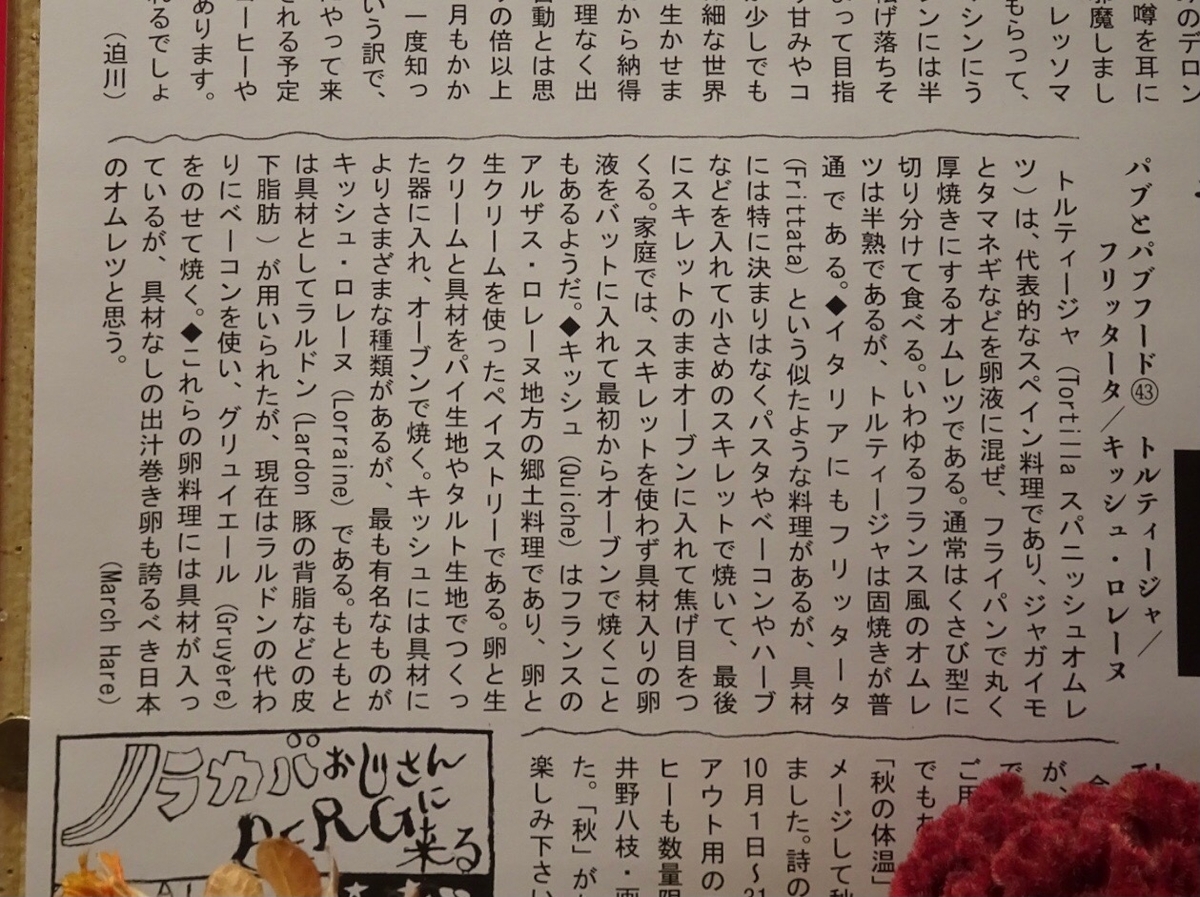 のデロン
噂を耳に
邪魔しまし
もらって、
レッソマ
シンにう
ンには半
転げ落ちそ
よって目指
り甘みやコ
が少しでも
細な世界
生かせま
から納得
理なく出
自動とは思
の倍以上
月もかか
一度知っ
いう訳で、
にやって来
される予定
コーヒーや
あります。
れるでしょ
（迫川）
パブとパブフード㊸　トルティージャ／
フリッタータ／キッシュ・ロレーヌ
トルティージャ（Tortilla スパニッシュオムレ
ツ）は、代表的なスペイン料理であり、ジャガイモ
とタマネギなどを卵液に混ぜ、フライパンで丸く
厚焼きにするオムレツである。通常はくさび型に
切り分けて食べる。いわゆるフランス風のオムレ
ツは半熟であるが、トルティージャは固焼きが普
通である。◆イタリアにもフリッタータ
（Frittata）という似たような料理があるが、具材
には特に決まりはなくパスタやベーコンやハーブ
などを入れて小さめのスキレットで焼いて、最後
にスキレットのままオーブンに入れて焦げ目をつ
くる。家庭では、スキレットを使わず具材入りの卵
液をバットに入れて最初からオーブンで焼くこと
もあるようだ。◆キッシュ（Quiche）はフランスの
アルザス・ロレーヌ地方の郷土料理であり、卵と
生クリームを使ったペイストリーである。卵と生
クリームと具材をパイ生地やタルト生地でつくっ
た器に入れ、オーブンで焼く。キッシュには具材に
よりさまざまな種類があるが、最も有名なものが
キッシュ・ロレーヌ（Lorraine）である。もともと
は具材としてラルドン（Lardon 豚の背脂などの皮
下脂肪）が用いられたが、現在はラルドンの代わ
りにベーコンを使い、グリュイエール（Gruyère）
をのせて焼く。◆これらの卵料理には具材が入っ
ているが、具材なしの出汁巻き卵も誇るべき日本
のオムレツと思う。
（March Hare）
が、
で
ご用
でも
「秋の体温」
メージして秋
ました。詩の
10月1日〜31
アウト用の
ヒーも数量限
井野八枝・画
た。「秋」が
楽しみ下さい
ノラカバおじさん
BERGに
来る